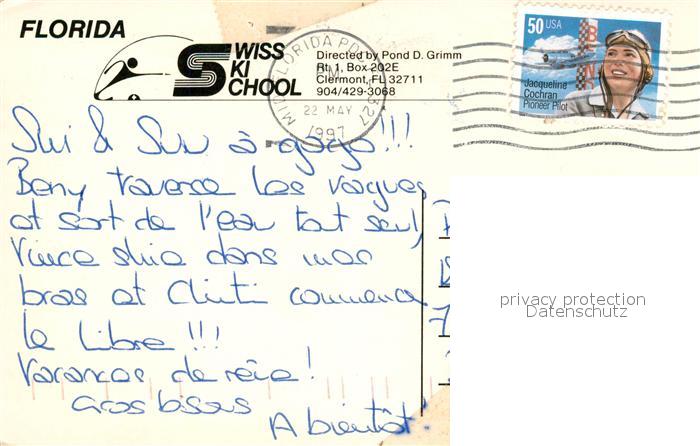 FLORIDA
SWISS
SKI
SCHOOL
Directed by Pond D. Grimm
Rt 1, Box 202E
Clermont, FL 32711
904/429-3068
FLORIDA
PM
22 MAY
1997
327
50 USA
Jacqueline
Cochran
Pioneer Pilot
Ski & Sun à gogo!!!
Beny traverse les vagues
et sort de l'eau tout seul,
Vince skie dans mes
bras et Clinti commence
le Libre !!!
Vacances de rêve !
Gros bisous
A bientôt!
privacy protection
Datenschutz